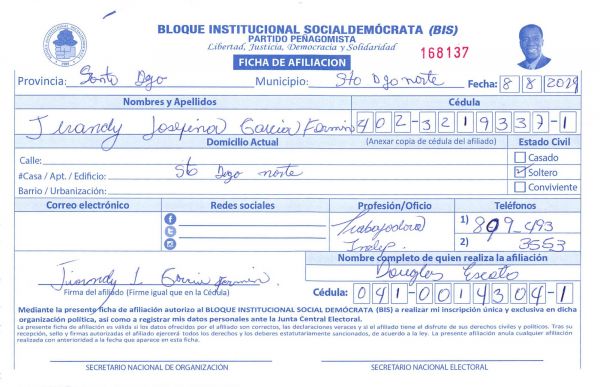 BLOQUE INSTITUCIONAL SOCIALDEMÓCRATA (BIS)
PARTIDO PEÑAGOMISTA
Libertad, Justicia, Democracia y Solidaridad
168137
FICHA DE AFILIACION
Provincia: Santo Dgo Municipio: Sto Dgo norte Fecha: 8 8 2021
Nombres y Apellidos Cédula
Jirandy Josefina Garcia Fermin 402-3219337-1
Domicilio Actual (Anexar copia de cédula del afiliado) Estado Civil
Calle: Casado
#Casa / Apt. / Edificio: Sto Dgo norte Soltero
Barrio / Urbanización: Conviviente
Correo electrónico Redes sociales Profesión/Oficio Teléfonos
Trabajadora 1) 809-493
Indep. 2) 3553
Nombre completo de quien realiza la afiliación
Douglas Escoto
Garcia Fermin
Firma del afiliado (Firme igual que en la Cédula) Cédula: 041-0014304-1
Mediante la presente ficha de afiliación autorizo al BLOQUE INSTITUCIONAL SOCIAL DEMÓCRATA (BIS) a realizar mi inscripción única y exclusiva en dicha
organización política, así como a registrar mis datos personales ante la Junta Central Electoral.
La presente ficha de afiliación es válida si los datos ofrecidos por el afiliado son correctos, las declaraciones veraces y si el afiliado tiene el disfrute de sus derechos civiles y políticos. Tras su
recepción, sello y firmas autorizadas el afiliado ejercerá todos los derechos y los deberes estatutariamente sancionados, de acuerdo a la ley. La presente afiliación anula cualquier afiliación
realizada con anterioridad a la fecha que aparece en esta ficha.
SECRETARIO NACIONAL DE ORGANIZACIÓN SECRETARIO NACIONAL ELECTORAL